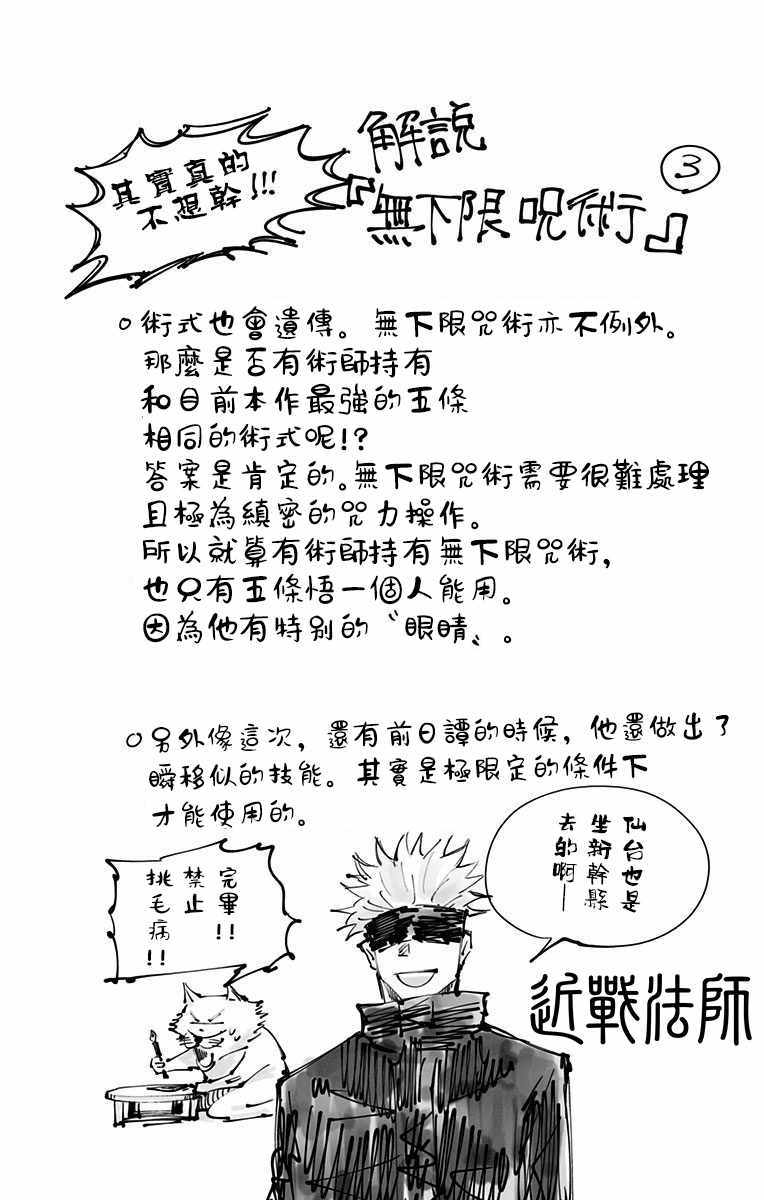 解説
『無下限呪術』
3
其實真的
不想幹!!!
○術式也會遺傳。無下限咒術亦不例外。
那麼是否有術師持有
和目前本作最強的五條
相同的術式呢!?
答案是肯定的。無下限咒術需要很難處理
且極為縝密的咒力操作。
所以就算有術師持有無下限咒術,
也只有五條悟一個人能用。
因為他有特別的〝眼睛〟。
○另外像這次,還有前日譚的時候,他還做出了
瞬移似的技能。其實是極限定的條件下
才能使用的。
仙台也是
坐新幹縣
去的啊—
完畢!!
禁止
挑毛病!!
近戰法師